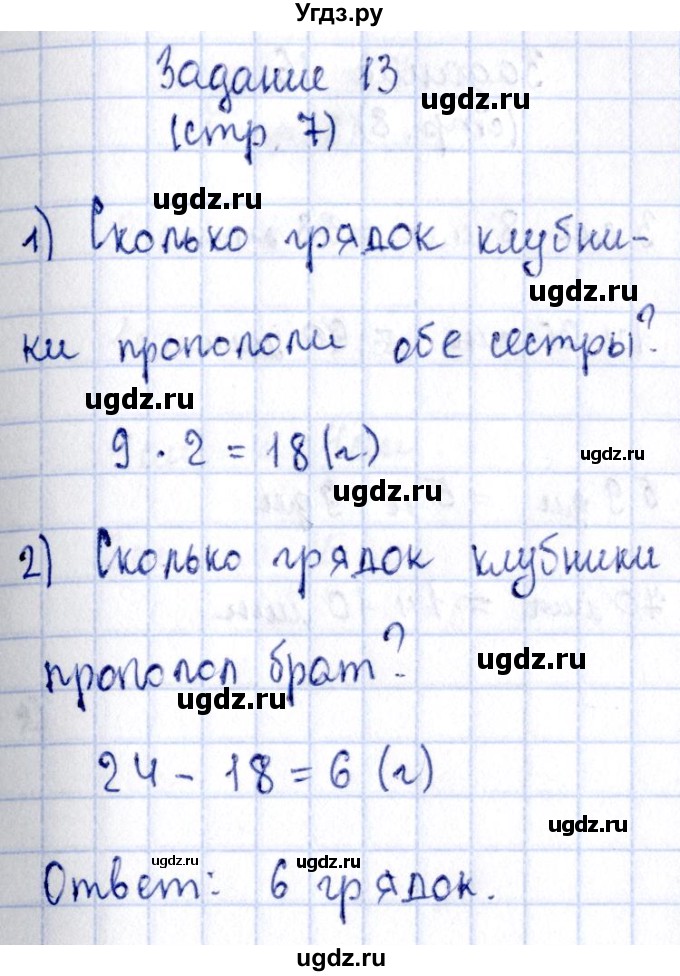 Угдз.ру
Задание 13
ugdz.ru
(стр. 7)
ugdz.ru
1) Сколько грядок клубни-
ugdz.ru
ки пропололи обе сестры?
ugdz.ru
9 · 2 = 18 (г.)
ugdz.ru
ugdz.ru
2) Сколько грядок клубники
прополол брат?
ugdz.ru
ugdz.ru
24 - 18 = 6 (г)
ugdz.ru
ugdz.ru
ugdz.ru
Ответ: 6 грядок.
ugdz.ru